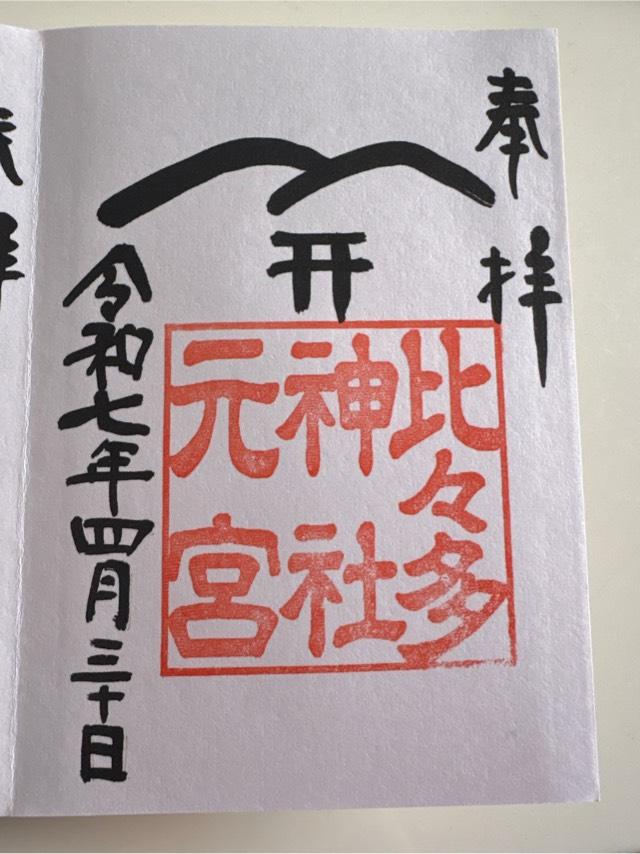 奉拝
比々多
神社
元宮
令和七年四月三十日